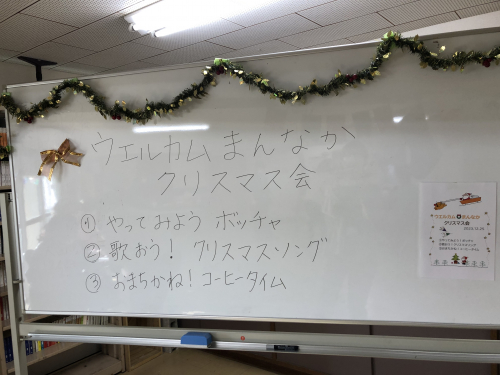 ウェルカムまんなか
クリスマス会
① やってみよう ボッチャ
② 歌おう! クリスマスソング
③ おまちかね! コーヒータイム
ウェルカム まんなか
クリスマス会